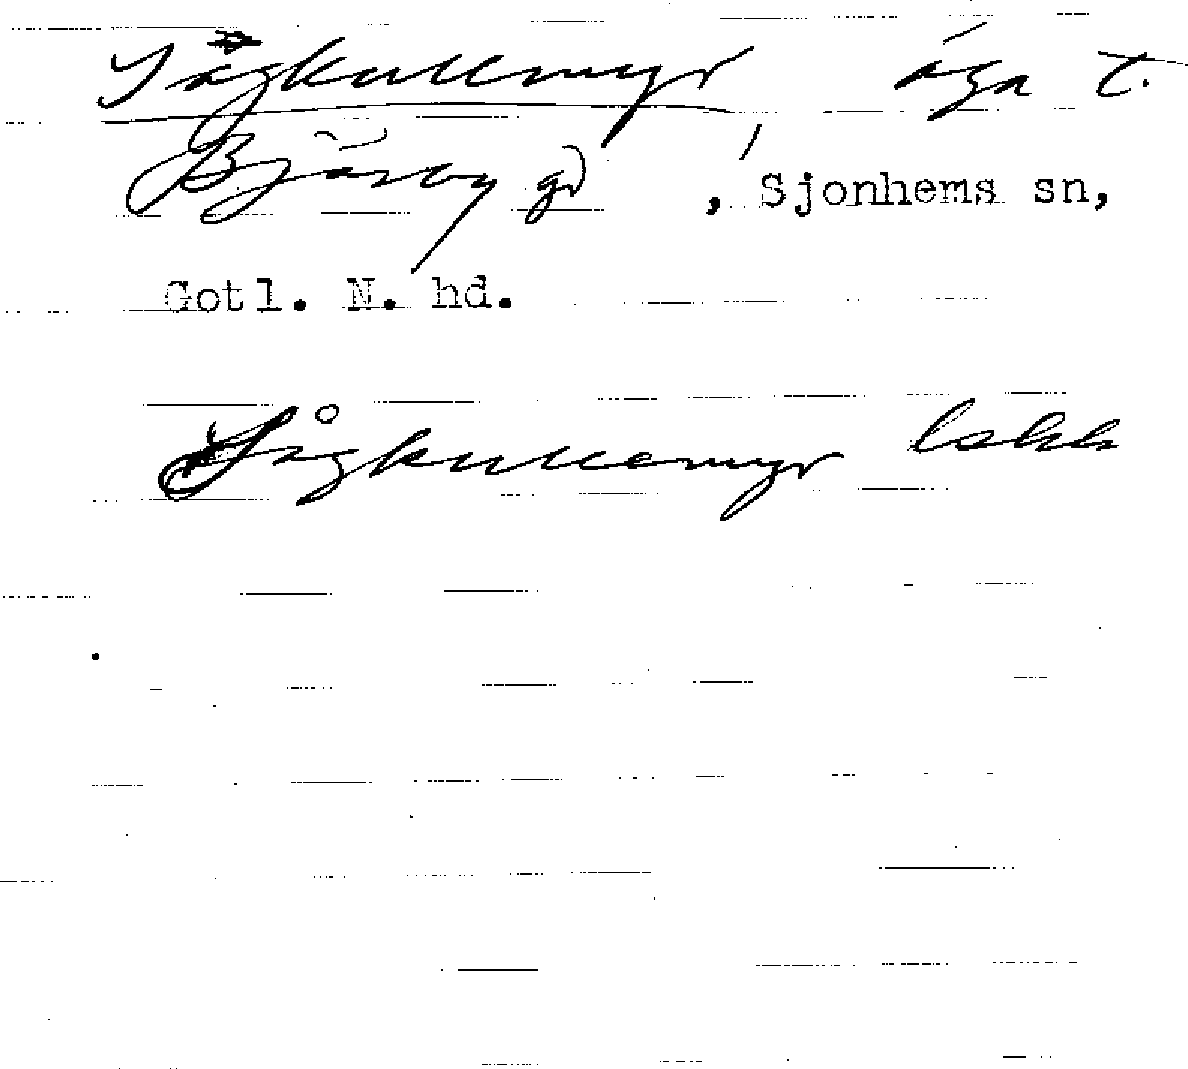 Sågkullmyr äga t.
Bjärby gd, Sjonhems sn,
Gotl. N. hd.
Sågkullemyr lskk